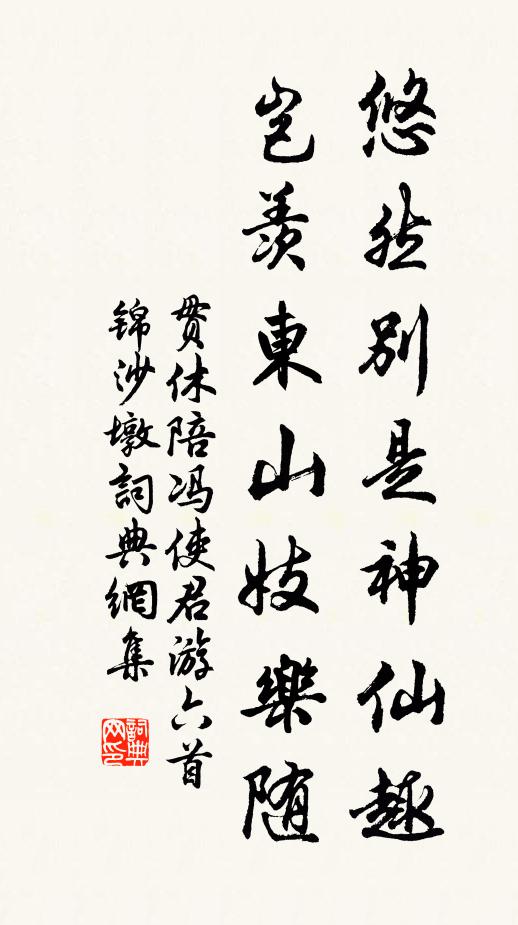 悠然别是神仙趣
岂羡東山妓樂随
贯休陪冯使君游六首
锦沙墩詞典網集
詞典网印